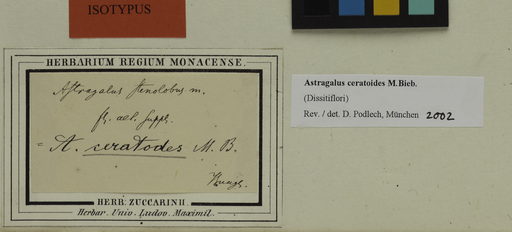 ISOTYPUS
HERBARIUM REGIUM MONACENSE.
Astragalus stenolobus m.
fl. alt. suppl.
= A. ceratodes M. B.
Bunge.
HERB. ZUCCARINII
Herbar. Univ. Ludov. Maximil.
Astragalus ceratoides M.Bieb.
(Dissitiflori)
Rev. / det. D. Podlech, München 2002